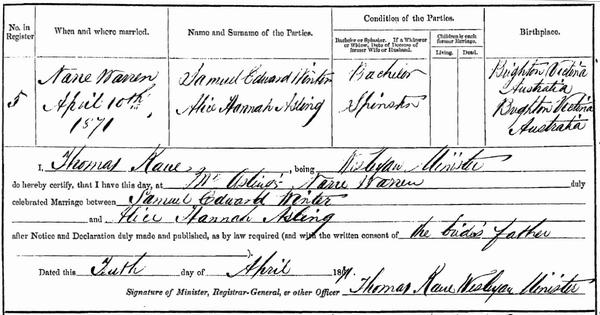 No. in Register
When and where married.
Name and Surname of the Parties.
Condition of the Parties.
Bachelor or Spinster.
If a Widower or Widow, Date of Decease of former Wife or Husband.
Children by each former Marriage.
Living.
Dead.
Birthplace.
5
Narre Warren
April 10th
1871
Samuel Edward Winter
Alice Hannah Asling
Bachelor
Spinster
Brighton Victoria
Australia
Brighton Victoria
Australia
I, Thomas Kane, being Wesleyan Minister
do hereby certify, that I have this day, at Mr Asling's Narre Warren duly
celebrated Marriage between Samuel Edward Winter
and Alice Hannah Asling
after Notice and Declaration duly made and published, as by law required (and with the written consent of the bride's father
).
Dated this Tenth day of April 1871.
Signature of Minister, Registrar-General, or other Officer Thomas Kane Wesleyan Minister